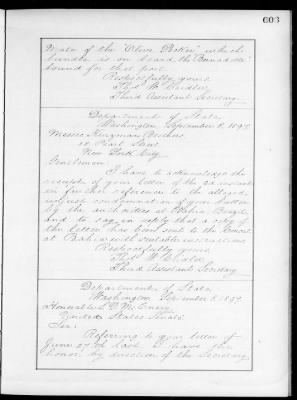 603
Mate of the "Olive Pecker" which
bundle is on board the
bound for that port.
Respectfully yours,
Thos. W. Cridler
Third Assistant Secretary.
Department of State,
Washington, September 8, 1897.
Messrs. Kingman Brothers,
Pearl Street,
New York City.
Gentlemen:
I have to acknowledge the
receipt of your letter of the 2d instant
in further reference to the alleged
unjust condemnation of your
by the authorities at Bahia, Brazil,
and to say in reply that a copy of
the letter has been sent to the Consul
at Bahia with suitable instructions.
Respectfully yours,
Thos. W. Cridler
Third Assistant Secretary.
Department of State,
Washington, September 8, 1897.
Honorable S. D. McEnery,
United States Senate.
Sir:
Referring to your letter of
June 27th last, I have the
honor, by direction of the Secretary,